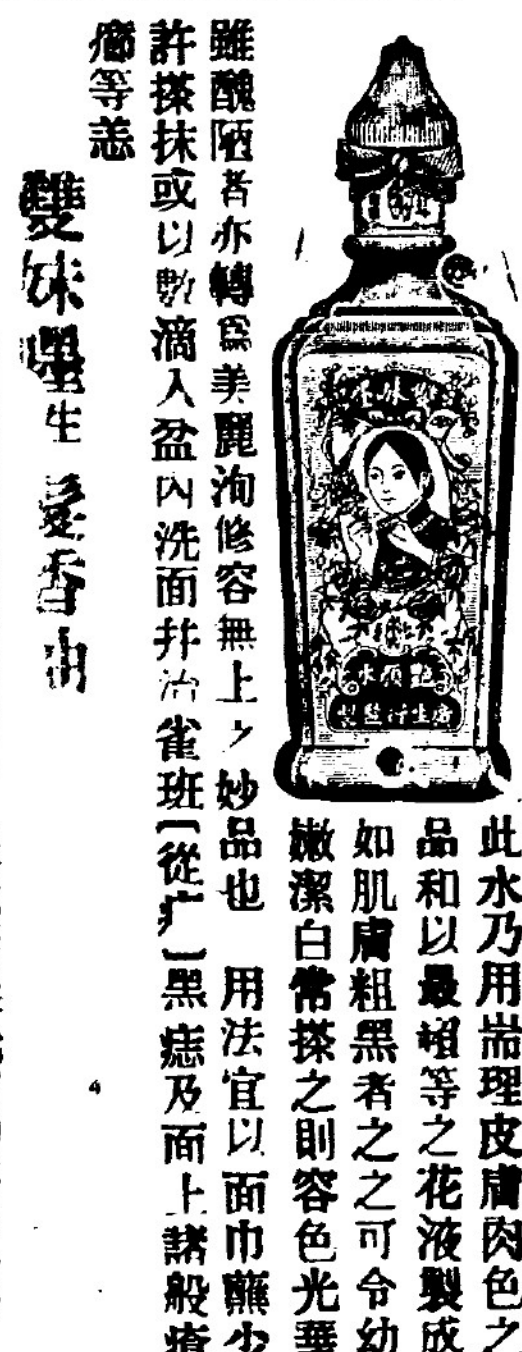 此水乃用耑理皮膚肉色之
品和以最超等之花液製成
如肌膚粗黑者之之可令幼
嫩潔白常搽之則容色光華
雖醜陋者亦轉爲美麗洵修容無上之妙品也　用法宜以面巾蘸少
許搽抹或以數滴入盆內洗面幷治雀班〔從疒〕黑痣及面上諸般瘡
癤等恙
雙妹嘜生髮香油
艷顏水
廣生行監製